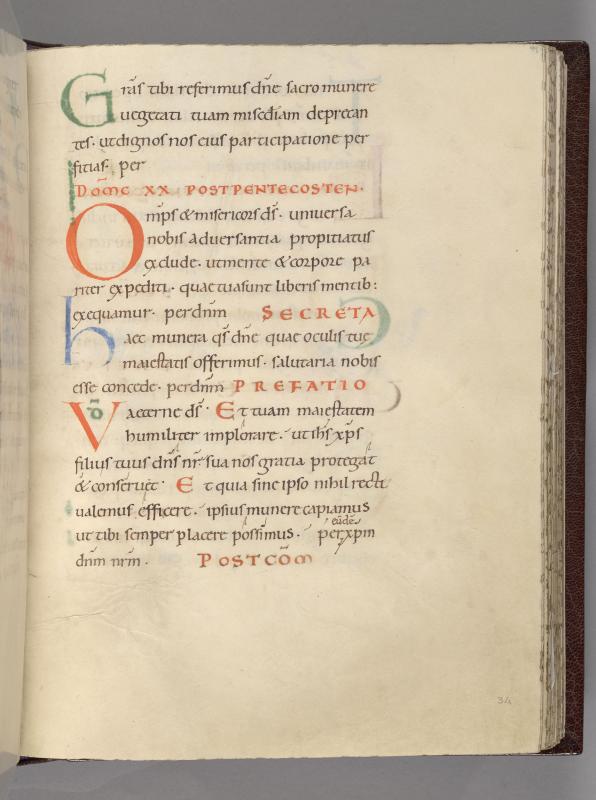 Grās tibi referimus dn̄e sacro munere
uegetati tuam misc̄diam deprecan
tes· ut dignos nos eius participatione per
ficias· per
DOM̄C XX POST PENTECOSTEN·
Om̄ps & misericors ds̄· uniuersa
nobis aduersantia propitiatus
exclude· ut mente & corpore pa
riter expediti· quae tua sunt liberis mentib:
exequamur· per dn̄m SECRETA
haec munera qs̄ dn̄e quae oculis tuę
maiestatis offerimus· salutaria nobis
esse concede· per dn̄m PREFATIO
VD aeterne ds̄· Et tuam maiestatem
humiliter implorare· ut ih̄s xp̄s
filius tuus dn̄s nr̄ sua nos gratia protegat
& conseruet· Et quia sine ipso nihil recti
ualemus efficere· ipsius munere capiamus
ut tibi semper placere possimus· per xp̄m
eūdē
dn̄m nr̄m· POSTCŌM
34